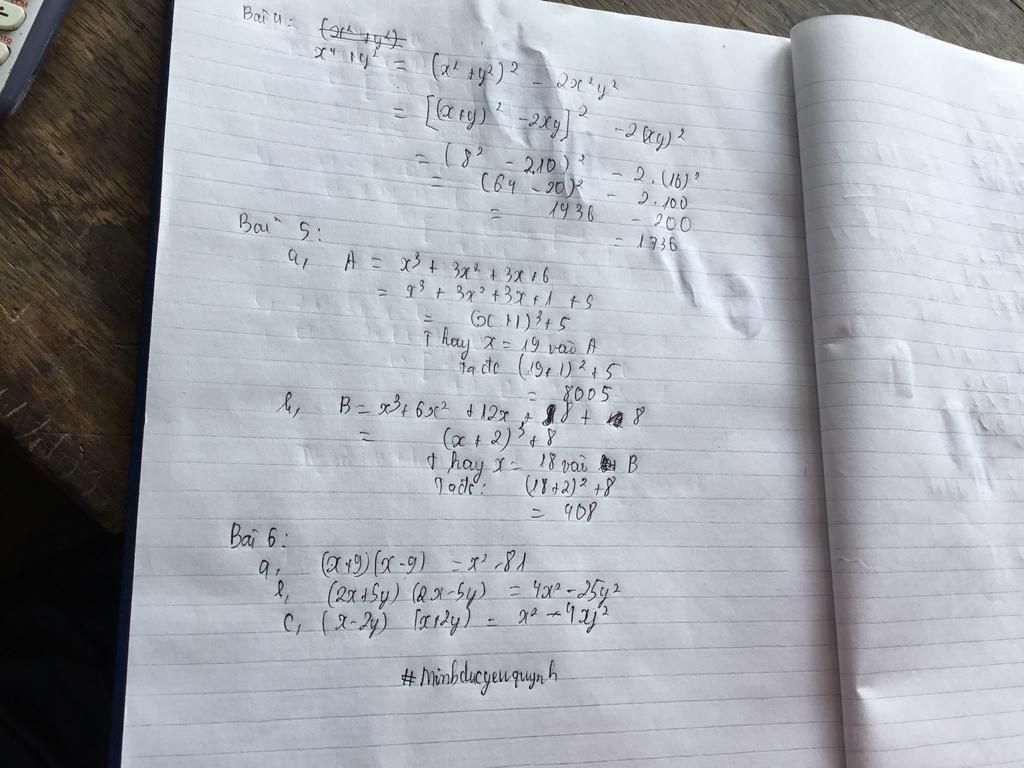 Bài 4: (x⁴ + y⁴)
x⁴ + y² = (x² + y²)² - 2x²y²
= [(x+y)² - 2xy]² - 2(xy)²
= (8² - 2.10)² - 2.(10)²
= (64 - 20)² - 2.100
= 1936 - 200
= 1736
Bài 5:
a, A = x³ + 3x² + 3x + 6
= x³ + 3x² + 3x + 1 + 5
= (x + 1)³ + 5
Thay x = 19 vào A
Ta đc (19+1)² + 5
= 8005
b, B = x³ + 6x² + 12x + 8 + 8
= (x + 2)³ + 8
Thay x = 18 vào B
Ta đc: (18+2)² + 8
= 408
Bài 6:
a, (x+9)(x-9) = x² - 81
b, (2x+5y) (2x-5y) = 4x² - 25y²
c, (x-2y) (x+2y) = x² - 4xy²
#minhducyeuquynh